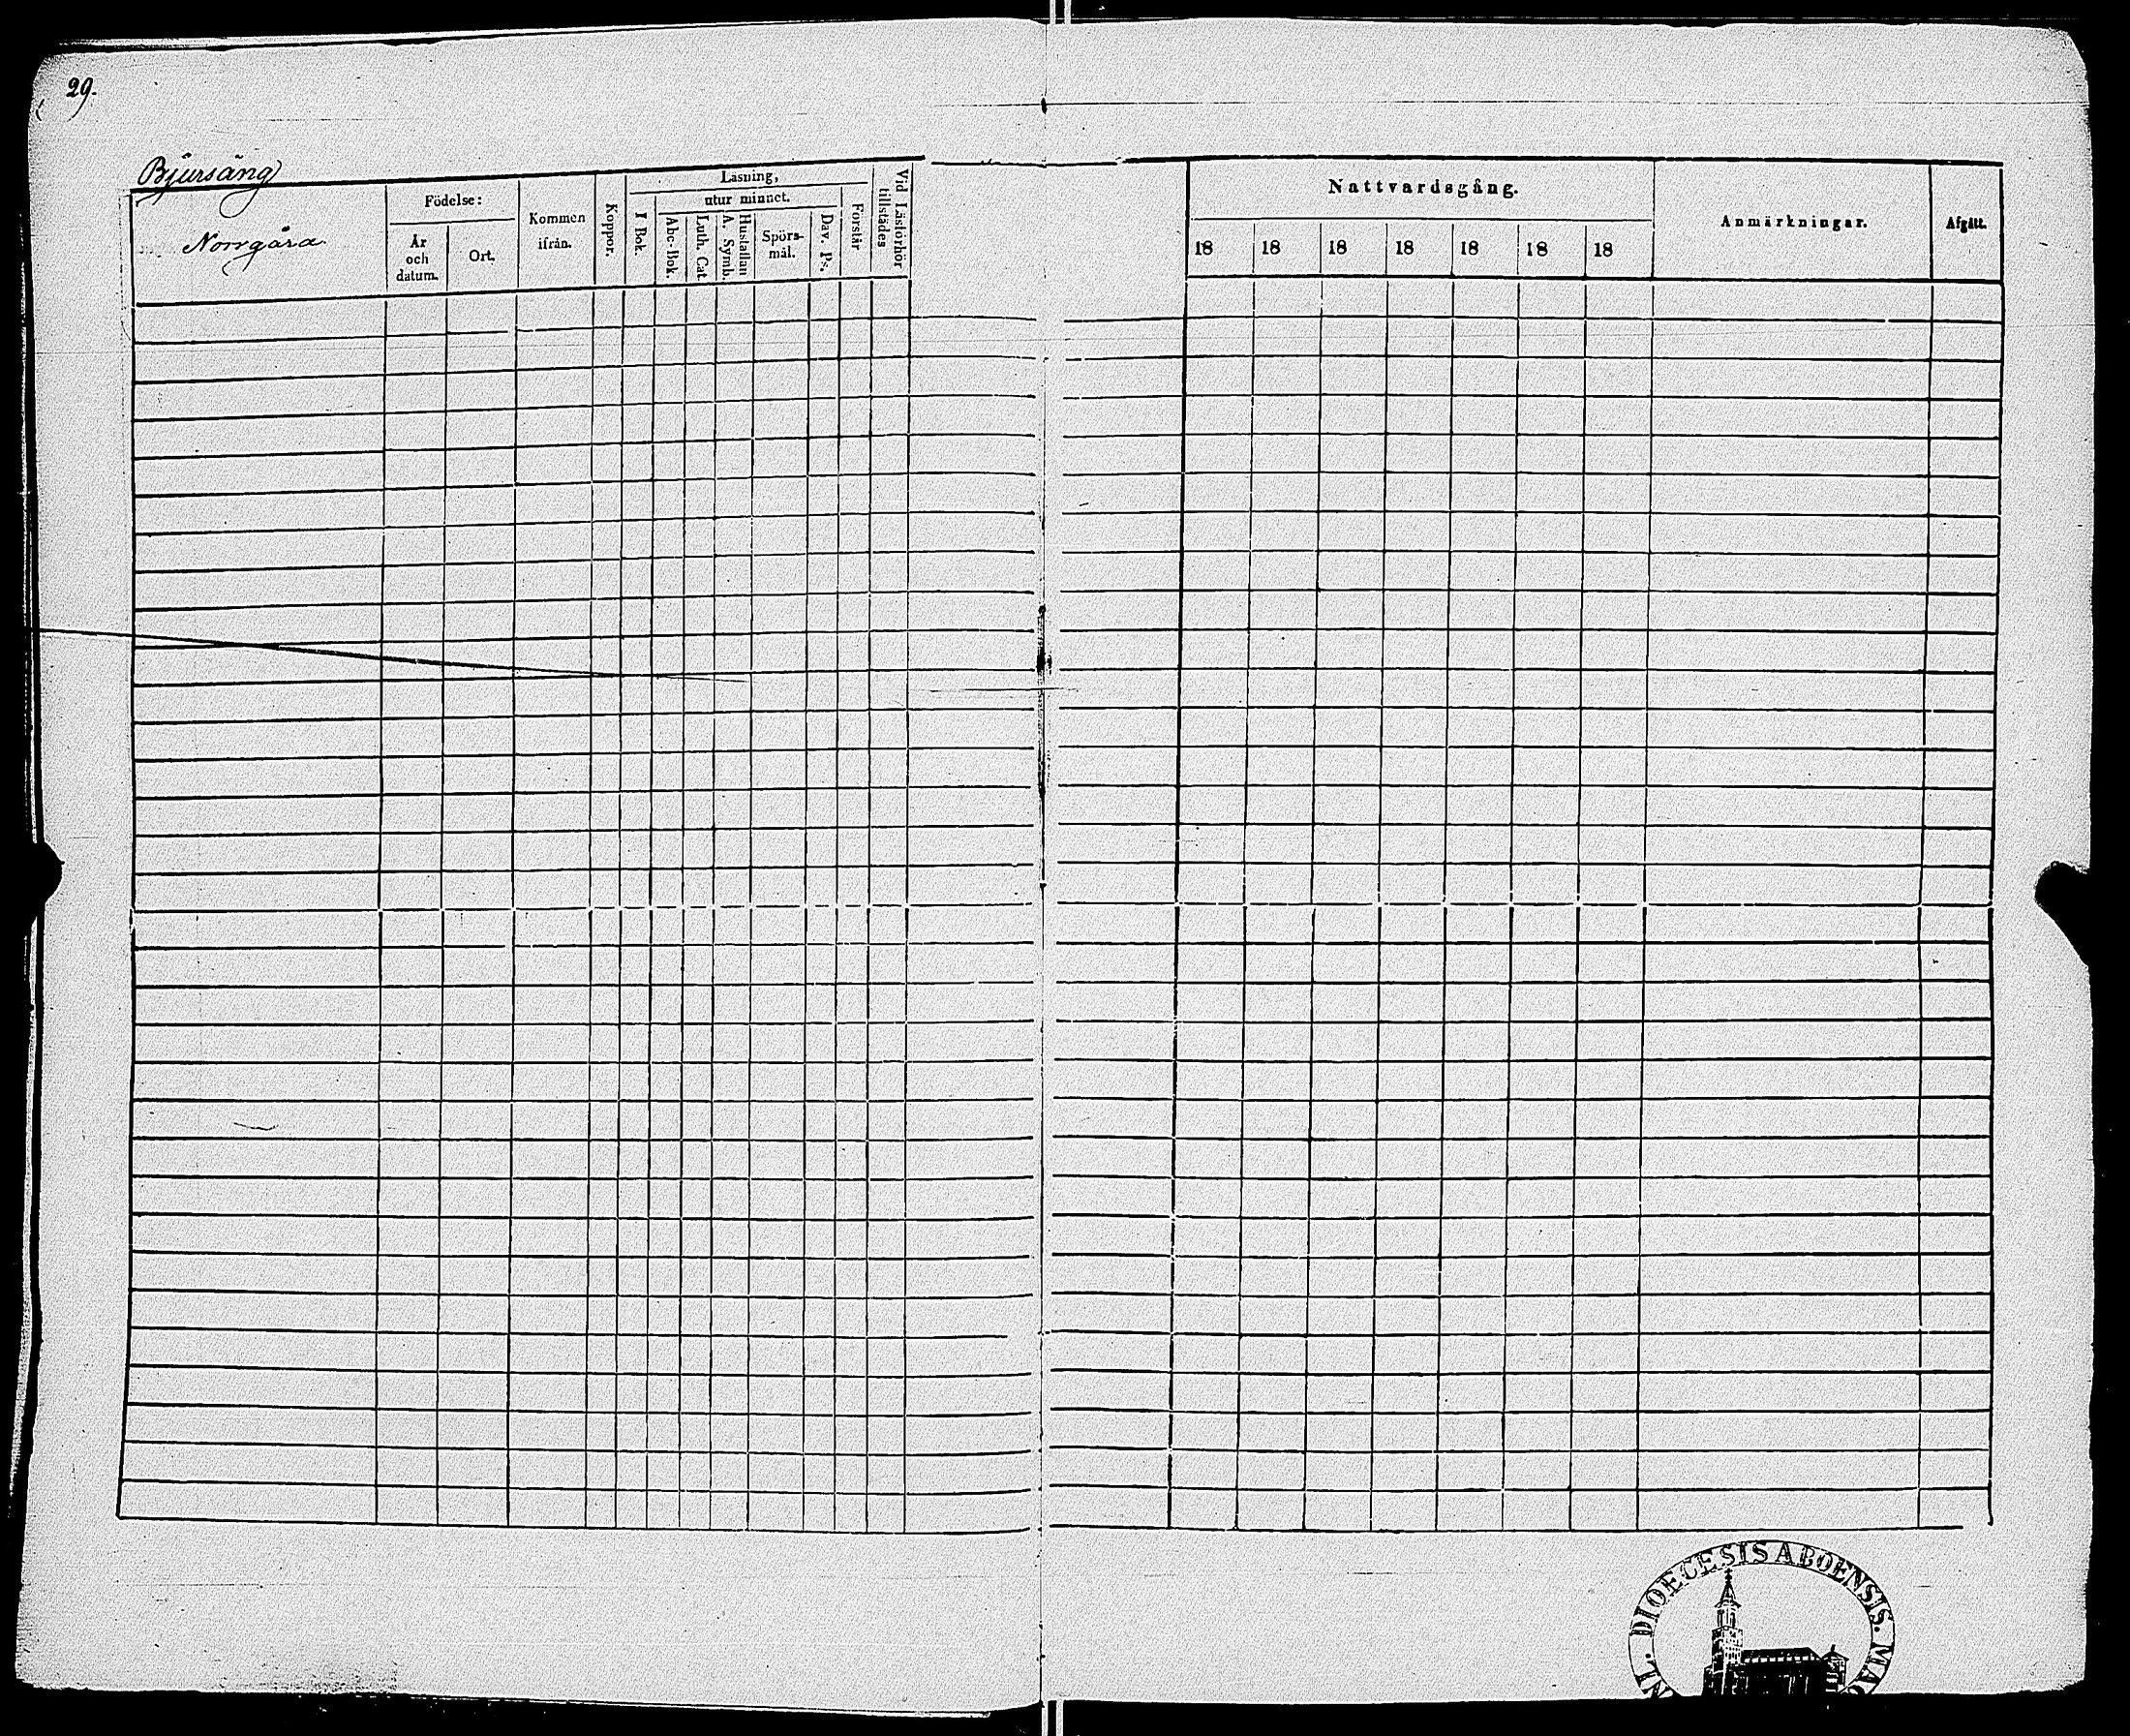 29.
Bjursäng
Norrgård
Födelse:
År
och
datum.
Ort.
Kommen
ifrån.
Koppor.
Läsning,
I Bok.
utur minnet.
Abc-Bok.
Luth. Cat.
Hustaflan
A. Symb.
Spörs-
mål.
Dav. Ps.
Förstår
Vid Läsförhör
tillstädes
Nattvardsgång.
18 18 18 18 18 18 18
Anmärkningar.
Afgått.
DIOECESIS ABOENSIS.